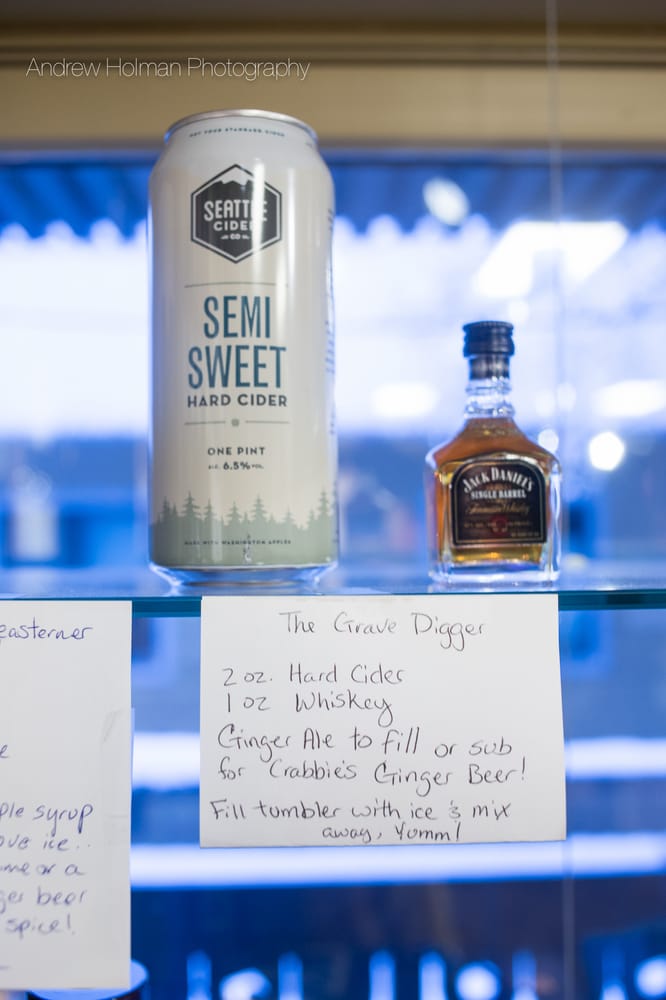 Andrew Holman Photography
NOT YOUR STANDARD CIDER
SEATTLE
CIDER
CO
SEMI
SWEET
HARD CIDER
ONE PINT
ALC. 6.5% VOL.
MADE WITH WASHINGTON APPLES
JACK DANIEL'S
SINGLE BARREL
Tennessee Whiskey
The Grave Digger
2 oz. Hard Cider
1 oz Whiskey
Ginger Ale to fill or sub
for Crabbie's Ginger Beer!
Fill tumbler with ice & mix
away, Yumm!
easterner
e
ple syrup
ove ice..
ome or a
ger beer
spice!